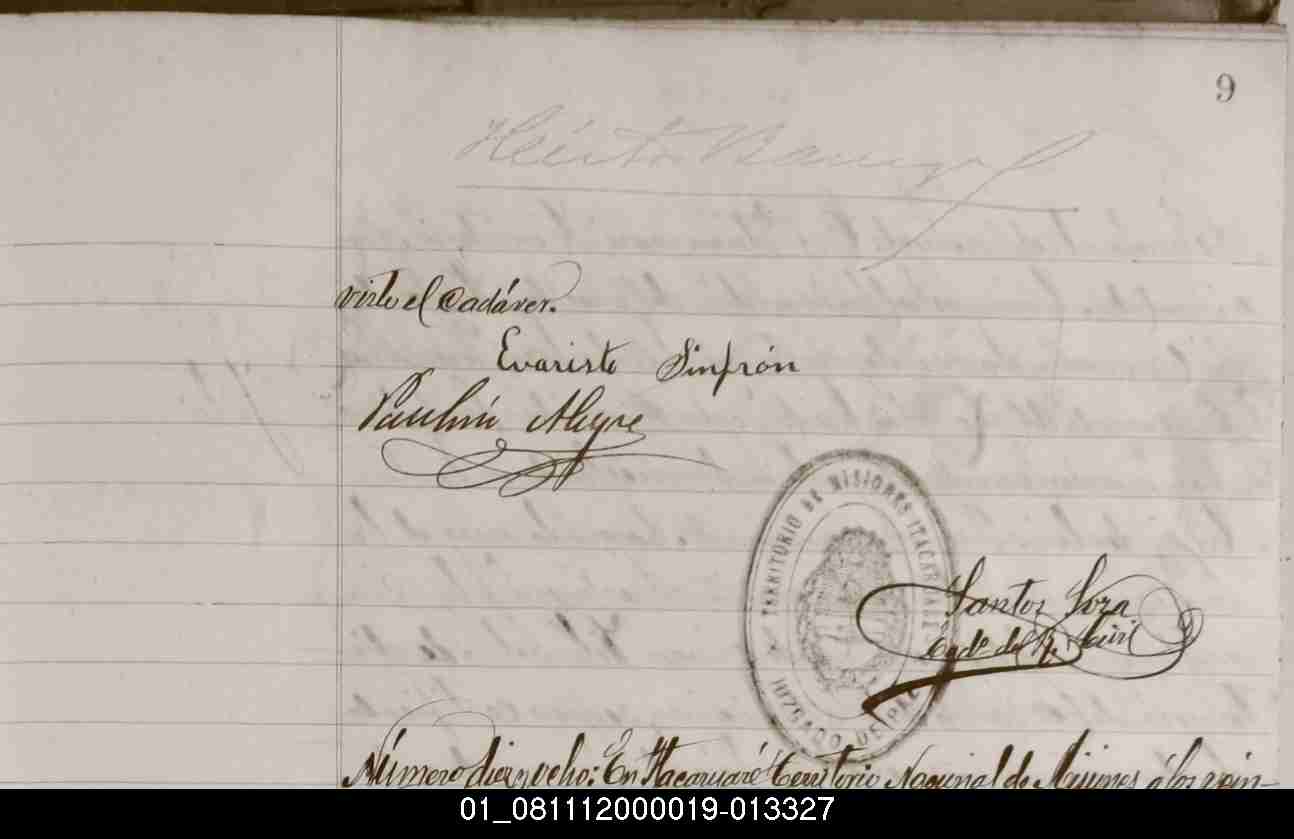 9
visto el Cadáver.
Evaristo Sinfrón
Paulino Alegre
TERRITORIO DE MISIONES ITACARUARÉ
JUZGADO DE PAZ
Santos Soza
Número diez y ocho: En Itacaruaré Territorio Nacional de Misiones á los vein-
01_081112000019-013327